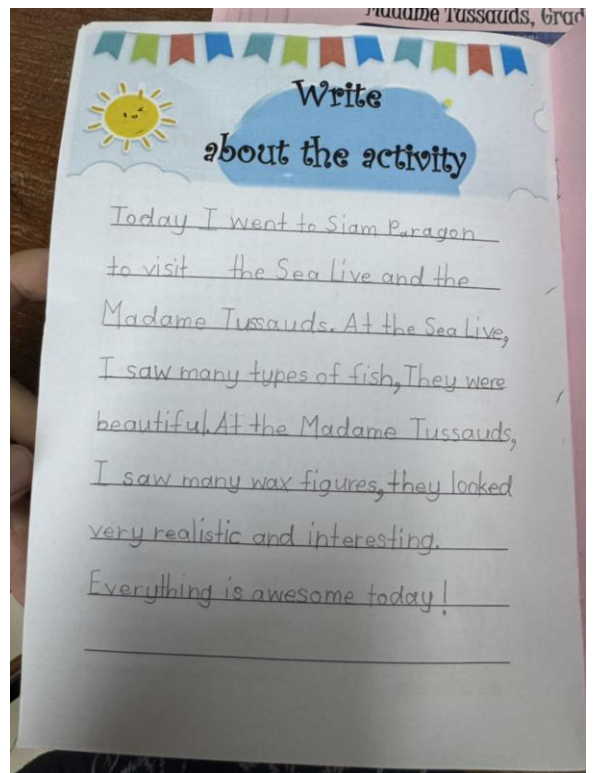 Madame Tussauds, Grad
Write
about the activity
Today I went to Siam Paragon
to visit the Sea Live and the
Madame Tussauds. At the Sea Live,
I saw many types of fish, They were
beautiful. At the Madame Tussauds,
I saw many wax figures, they looked
very realistic and interesting.
Everything is awesome today!